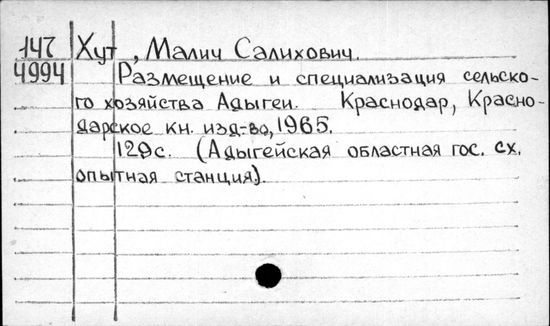 147 Хут, Малич Салихович.
4994 Размещение и специализация сельско-
го хозяйства Адыгеи. Краснодар, Красно-
дарское кн. изд-во, 1965.
129с. (Адыгейская областная гос. сх.
опытная станция).